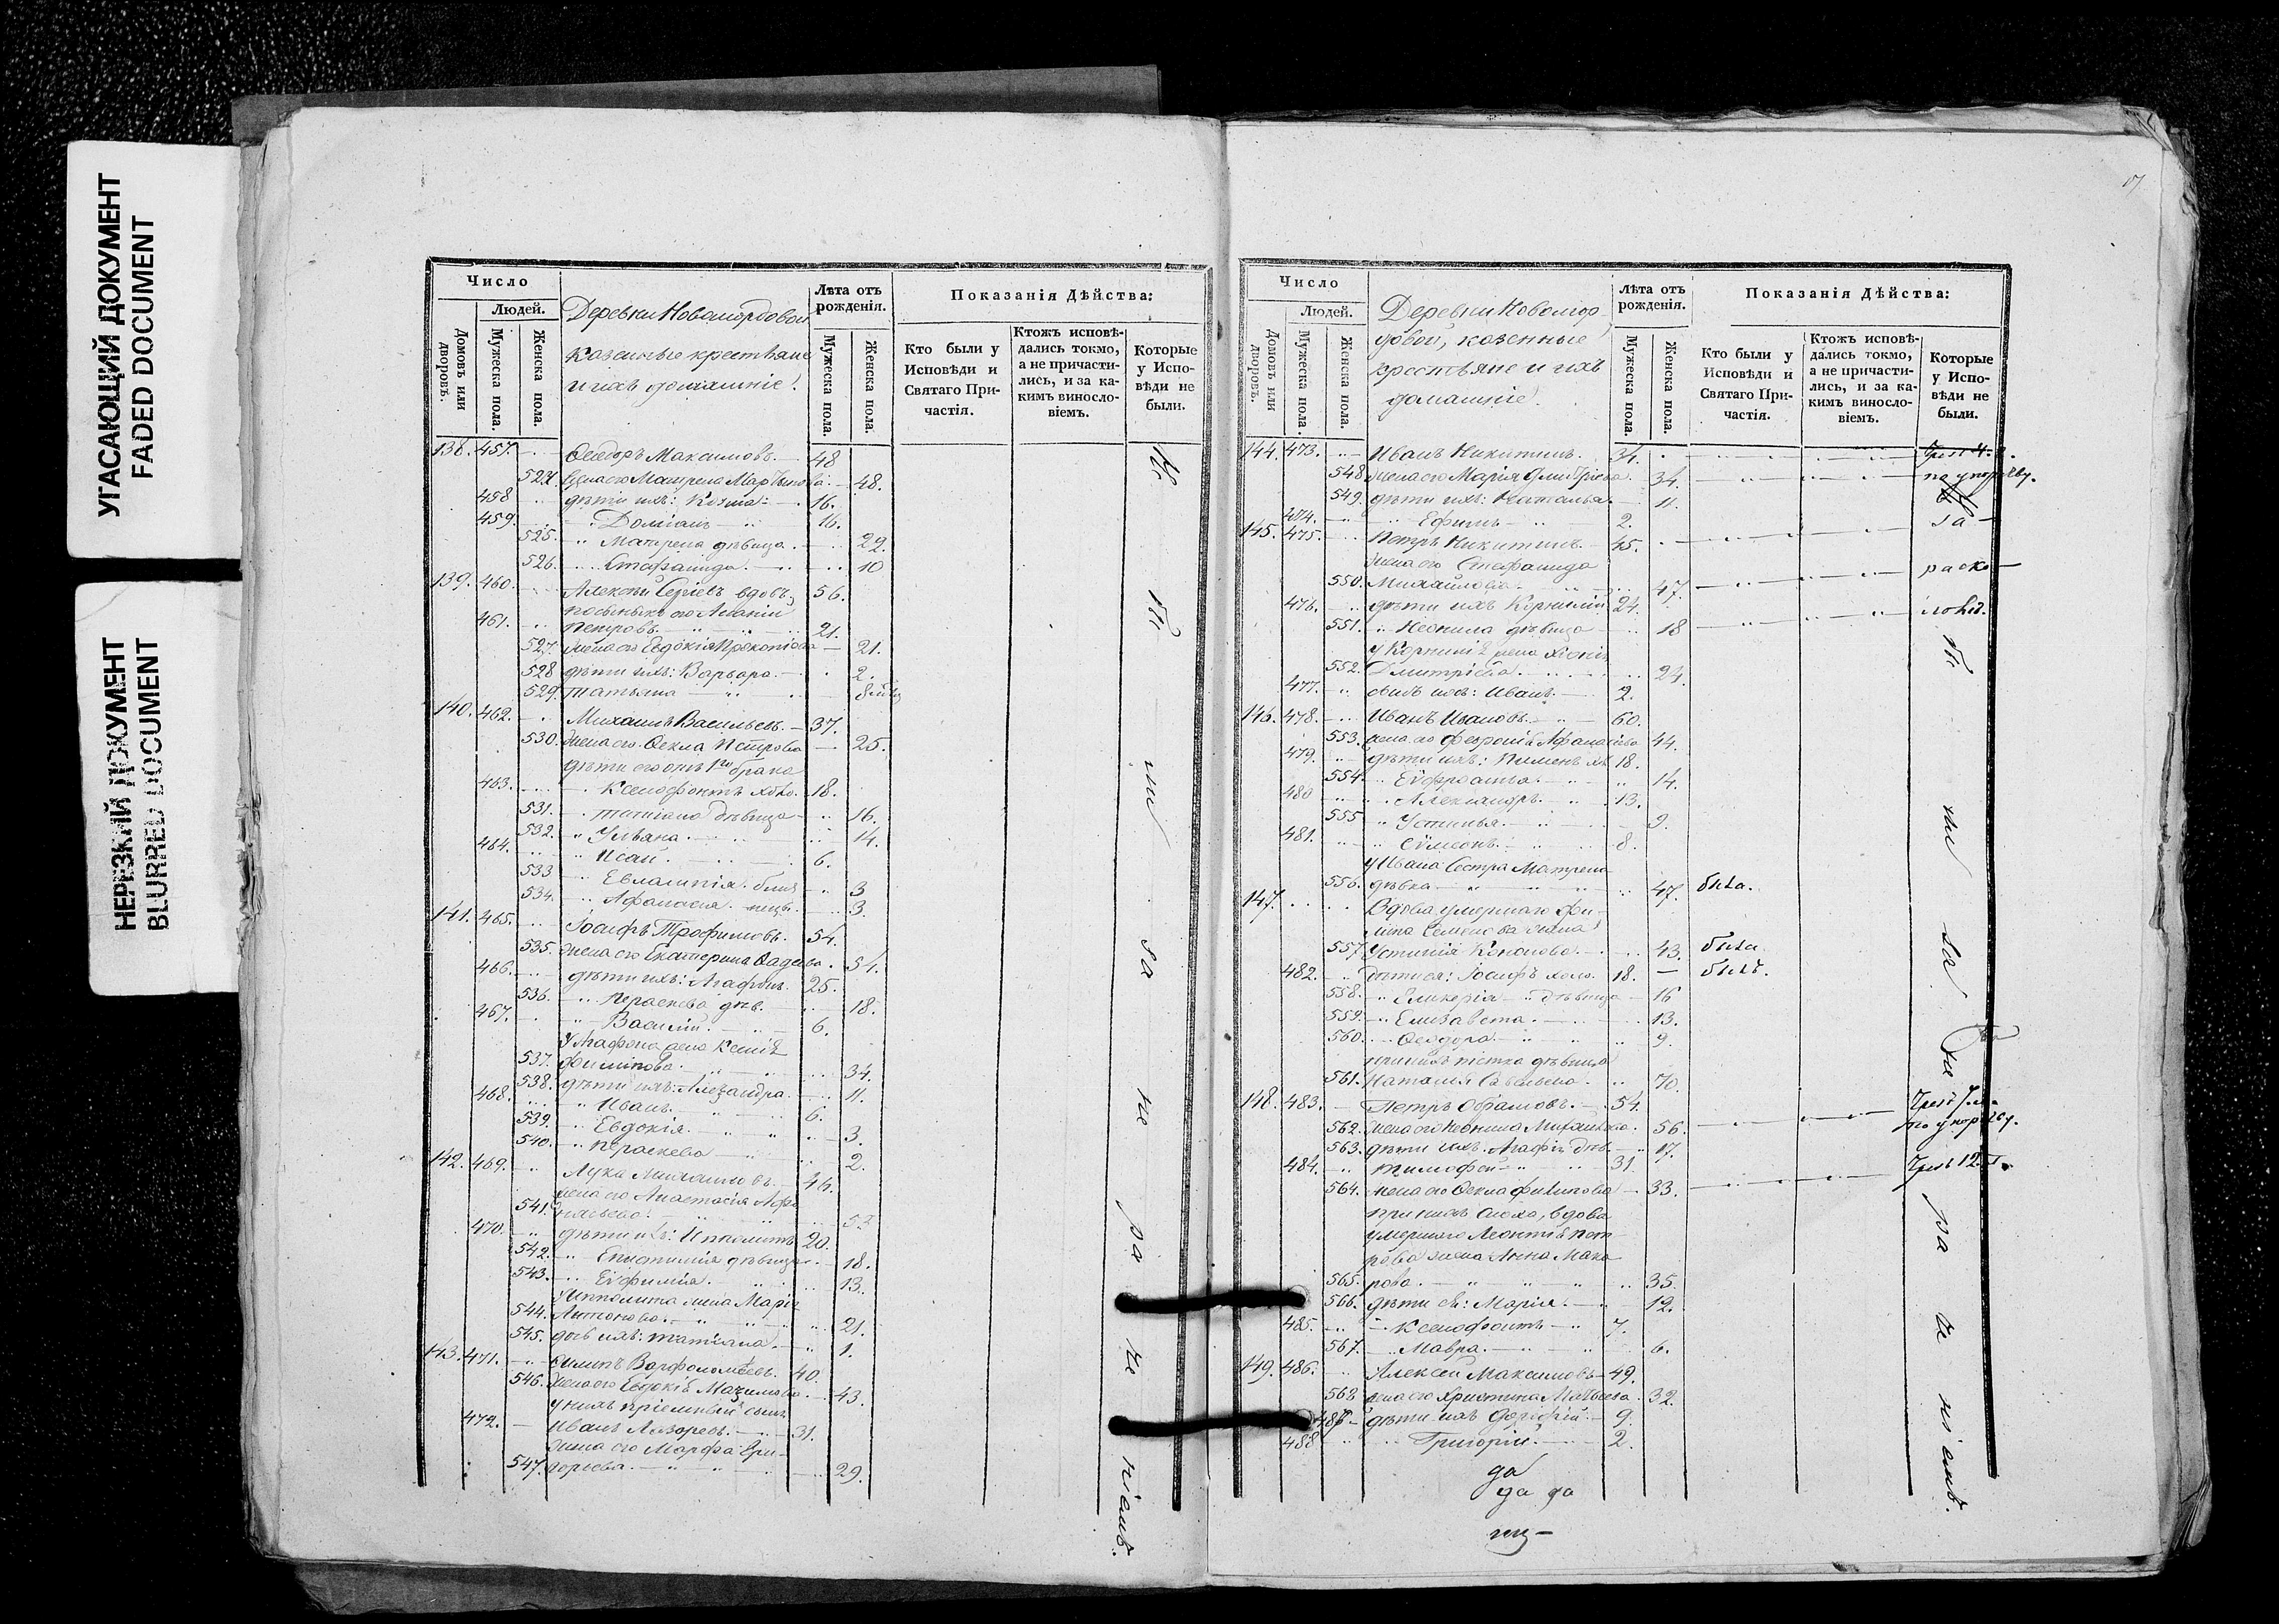 УГАСАЮЩИЙ ДОКУМЕНТ
FADED DOCUMENT
НЕРЕЗКИЙ ДОКУМЕНТ
BLURRED DOCUMENT
Число
Людей.
Домовъ или дворовъ.
Мужеска пола.
Женска пола.
Деревни Новомордовой
казенные крестьяне
и ихъ домашніе.
Лѣта отъ рожденія.
Мужеска пола.
Женска пола.
Показанія Дѣйства:
Кто были у Исповѣди и Святаго Причастія.
Ктожъ исповѣдались токмо, а не причастились, и за какимъ винословіемъ.
Которые у Исповѣди не были.
138. 457. Ѳеодоръ Максимовъ. 48
524. жена его Матрена Мартынова 48.
458 дѣти ихъ: Козма 16.
459. Доміанъ 16.
525. Матрена дѣвица 22.
526. Стефанида. 10
139. 460. Алексѣй Сергіевъ вдовъ 56.
461. Петровъ. 21.
527. жена его Евдокія Прокопіова 21.
528 дѣти ихъ: Варвара. 2.
529. Татьяна
140. 462. Михаилъ Васильевъ. 37.
530. жена его Ѳекла Петрова 25.
дѣти его отъ 1го брака
463. Ксенофонтъ холо. 18.
531. Татиана дѣвица 16.
532. Ульяна. 14.
464. Исаи 6.
533 Евлампія близ 3
534. Афанасія нецы. 3.
141. 465. Іосифъ Трофимовъ. 54.
535. жена его Екатерина Фадеева. 54.
466. дѣти ихъ: Агафонъ. 25.
536. Пераскева дѣв. 18.
467. Василій. 6.
У Агафона жена Ксенія
537. Филипова. 34.
538. дѣти ихъ: Алеѯандра. 11.
468. Иванъ. 6.
539. Евдокія. 3.
540. Пераскева 2.
142. 469. Лука Михаиловъ. 44.
жена его Анастасія Афа
541. насьева. 53
470. дѣти ихъ: Ипполитъ 20.
542. Епистимія дѣвица. 18.
543. Еѵфимія. 13.
Ипполита жена Марія
544. Антонова. 21.
545. дочь ихъ: Татіана. 1.
143. 471. Филипъ Варфоломеевъ. 40.
546. жена его Евдокія Маѯимова. 43.
у нихъ пріемный сынъ
472. Иванъ Лазаревъ. 31.
жена его Марфа Гри-
547. горьева. 29.
Не
бы
ли
за
не
ра
че
ніемъ.
17
Число
Людей.
Домовъ или дворовъ.
Мужеска пола.
Женска пола.
Деревни Новомор
довой, казенные
крестьяне и ихъ
домашніе.
Лѣта отъ рожденія.
Мужеска пола.
Женска пола.
Показанія Дѣйства:
Кто были у Исповѣди и Святаго Причастія.
Ктожъ исповѣдались токмо, а не причастились, и за какимъ винословіемъ.
Которые у Исповѣди не были.
144. 473. Иванъ Никитинъ. 34.
548 жена его Марія Дмитріева. 34.
549. дѣти ихъ: Наталья. 11.
474. Ефимъ 2.
145. 475. Петръ Никитинъ. 45.
жена его Стефанида
550. Михайлова. 47.
476. дѣти ихъ Корнилій 24.
551. Неонила дѣвица 18
у Корнилія жена Хіонія
552. Дмитріева. 24.
477. сынъ ихъ: Иванъ. 2.
146. 478. Иванъ Ивановъ. 60.
553. жена его Феѵронія Афанасіева 44.
479. дѣти ихъ: Пименъ хл 18.
554. Еѵфросинья. 14.
480 Александръ. 13.
555 Устинья. 9.
481. Сѵмеонъ. 8.
у Ивана Сестра Матрена
556. дѣвка 47. была.
147. Вдова умершаго Фи-
липа Семенова жена
557 Устинія Кононова. 43. была.
482. дѣти ея: Іосифъ холо. 18. былъ.
558. Гликерія дѣвица 16
559. Елизавета. 13.
560. Ѳеодора. 9.
при нихъ тетка дѣвица
561. Наталия Савельева. 70.
148. 483. Петръ Абрамовъ. 54.
562. жена его Неонила Михаилова. 56.
563. дѣти ихъ. Агафія дѣв. 17.
484. Тимофей 31
564. жена его Ѳекла Филипова 33.
при нихъ сноха, вдова
умершаго Леонтія Пет
рова жена Анна Мака
565. рова. 35.
566. дѣти ея: Марія. 12.
485. Ксенофонтъ 7.
567. Мавра. 6.
149. 486. Алексей Максимовъ 49.
568 жена его Христина Матвеева. 32.
487 дѣти ихъ Сергій. 9.
488 Григорій. 2.
да
да да
за
раско
ловъ.
бы
ли
за
не
ра
че
ніемъ.